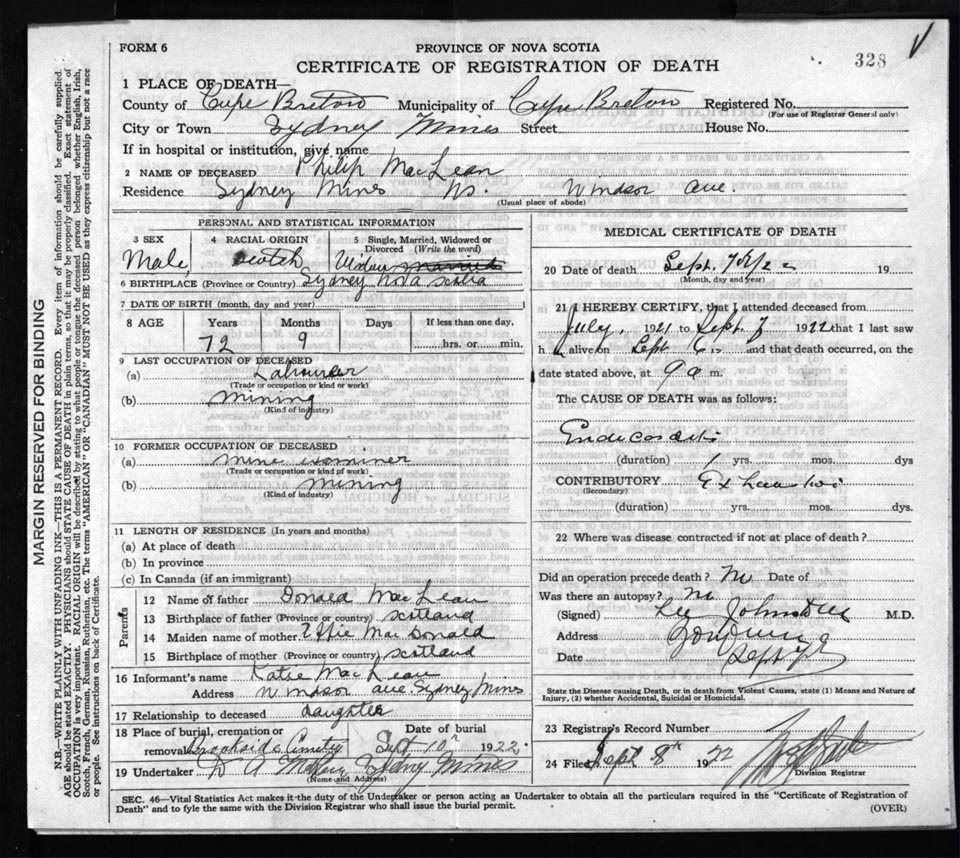 FORM 6
PROVINCE OF NOVA SCOTIA
328
CERTIFICATE OF REGISTRATION OF DEATH
1 PLACE OF DEATH—
County of Cape Breton Municipality of Cape Breton Registered No.
(For use of Registrar General only)
City or Town Sydney Mines Street House No.
If in hospital or institution, give name
2 NAME OF DECEASED Philip MacLean
Residence Sydney Mines NS. Windsor ave.
(Usual place of abode)
PERSONAL AND STATISTICAL INFORMATION
3 SEX 4 RACIAL ORIGIN 5 Single, Married, Widowed or Divorced (Write the word)
Male Scotch Widow married
6 BIRTHPLACE (Province or Country) Sydney Nova Scotia
7 DATE OF BIRTH (month, day and year)
8 AGE Years Months Days If less than one day,
72 9 hrs. or min.
9 LAST OCCUPATION OF DECEASED
(a) Labourer
(Trade or occupation or kind or work)
(b) Mining
(Kind of industry)
10 FORMER OCCUPATION OF DECEASED
(a) mine examiner
(Trade or occupation or kind of work)
(b) Mining
(Kind of industry)
11 LENGTH OF RESIDENCE (In years and months)
(a) At place of death
(b) In province
(c) In Canada (if an immigrant)
Parents
12 Name of father Donald MacLean
13 Birthplace of father (Province or country) Scotland
14 Maiden name of mother Effie MacDonald
15 Birthplace of mother (Province or country) Scotland
16 Informant's name Katie MacLean
Address Windsor ave. Sydney Mines
17 Relationship to deceased daughter
18 Place of burial, cremation or removal Date of burial
Brookside Cemetry Sept 10th 1922
19 Undertaker D A Sydney Mines
(Name and Address)
MEDICAL CERTIFICATE OF DEATH
20 Date of death Sept. 7 19
(Month, day and year)
21 I HEREBY CERTIFY, that I attended deceased from
July, 1921 to Sept 7 1922 that I last saw
h alive on Sept 6 and that death occurred, on the
date stated above, at 9 a m.
The CAUSE OF DEATH was as follows:
Endocarditis
(duration) 1 yrs. mos. dys
CONTRIBUTORY Exhaustion
(Secondary)
(duration) yrs. mos. dys.
22 Where was disease contracted if not at place of death?
Did an operation precede death? No Date of
Was there an autopsy? No
(Signed) Johnstone M.D.
Address
Date Sept
State the Disease causing Death, or in death from Violent Causes, state (1) Means and Nature of Injury, (2) whether Accidental, Suicidal or Homicidal.
23 Registrar's Record Number
24 Filed Sept 8th 1922
Division Registrar
SEC. 46—Vital Statistics Act makes it the duty of the Undertaker or person acting as Undertaker to obtain all the particulars required in the "Certificate of Registration of
Death" and to fyle the same with the Division Registrar who shall issue the burial permit.
(OVER)
MARGIN RESERVED FOR BINDING
N.B.—WRITE PLAINLY WITH UNFADING INK—THIS IS A PERMANENT RECORD. Every item of information should be carefully supplied.
AGE should be stated EXACTLY. PHYSICIANS should STATE CAUSE OF DEATH in plain terms, so that it may be properly classified. Exact statement of
OCCUPATION is very important. RACIAL ORIGIN will be described by stating to what people or tongue the deceased person belonged whether English, Irish,
Scotch, French, German, Russian, Ruthenian, etc. The terms "AMERICAN" OR "CANADIAN" MUST NOT BE USED as they express citizenship but not a race
or people. See instructions on back of Certificate.